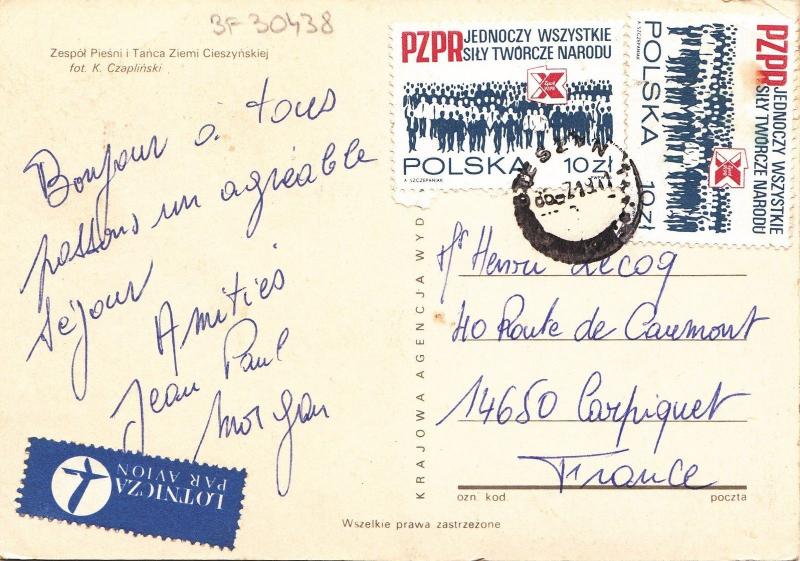 3F 30438
Zespół Pieśni i Tańca Ziemi Cieszyńskiej
fot. K. Czapliński
Bonjour à tous
passons un agréable
séjour
Amitiés
Jean Paul
Morgan
LOTNICZA
PAR AVION
Wszelkie prawa zastrzeżone
KRAJOWA AGENCJA WYD
PZPR JEDNOCZY WSZYSTKIE
SIŁY TWÓRCZE NARODU
POLSKA 10 ZŁ
A. SZCZEPANIAK
PZPR JEDNOCZY WSZYSTKIE
SIŁY TWÓRCZE NARODU
POLSKA 10 ZŁ
A. SZCZEPANIAK
Mr Henri Lecog
40 Route de Caumont
14650 Carpiquet
France
ozn. kod. poczta